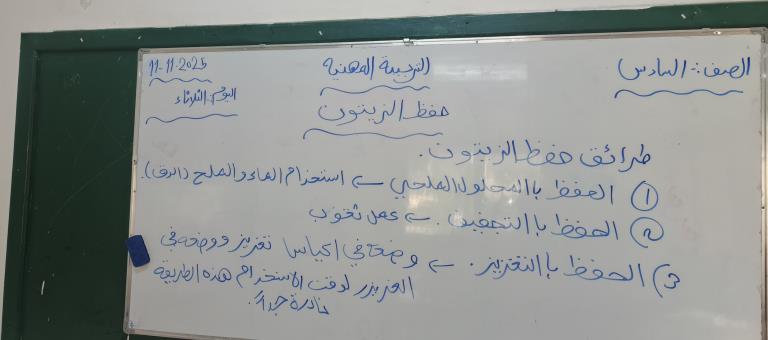 الصف: السادس
التربية المهنية
11-11-2025
اليوم: الثلاثاء
حفظ الزيتون
طرائق حفظ الزيتون.
① الحفظ بالمحلول الملحي ← استخدام الماء والملح (الدق).
② الحفظ بالتجفيف. ← عمل ثقوب
3) الحفظ بالتفريز. ← وضعه في اكياس تفريز ووضعه في
الفريزر لوقت الاستخدام هذه الطريقة
نادرة جداً.